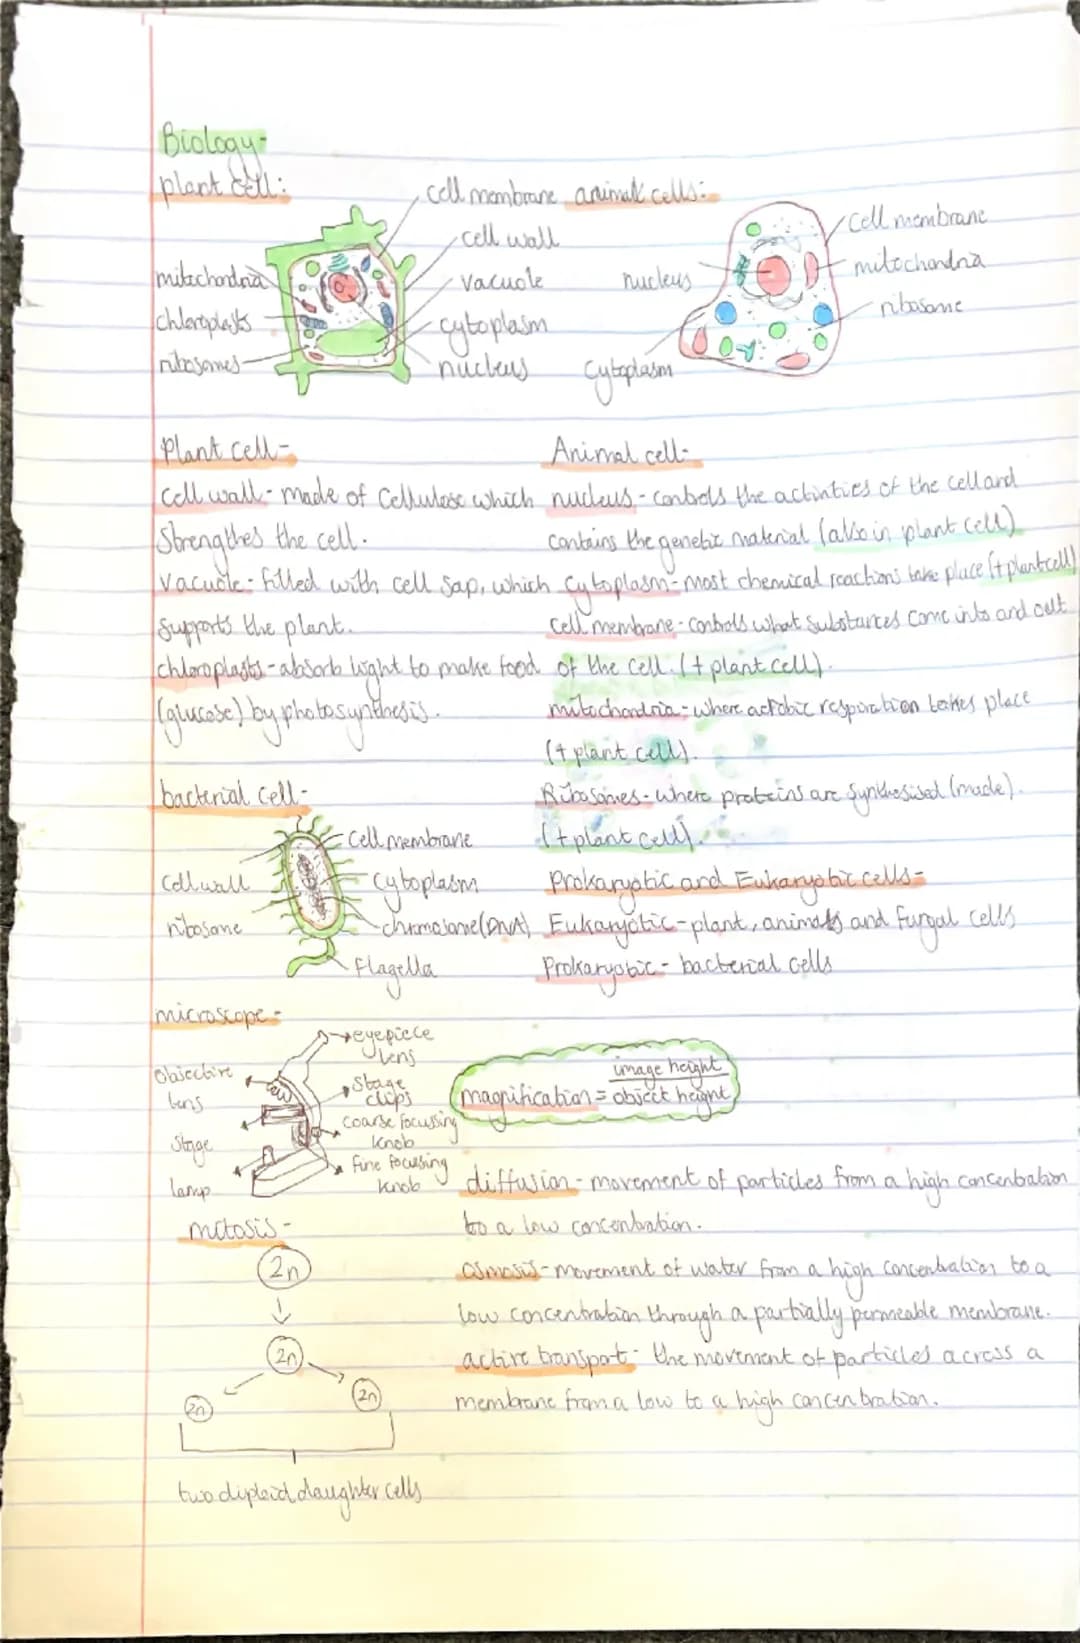 Biology-
plant cell:
cell membrane
cell wall
vacuole
cytoplasm
nucleus
mitochondria
chloroplasts
ribosomes
animal cells:
cell membrane
mitochondria
ribosome
nucleus
cytoplasm
Plant cell-
cell wall - made of cellulose which
strengthes the cell.
vacuole - filled with cell sap, which
supports the plant.
chloroplasts - absorb light to make food
(glucose) by photosynthesis.
Animal cell-
nucleus - controls the activities of the cell and
contains the genetic material (also in plant cell)
cytoplasm - most chemical reactions take place (+plant cell)
cell membrane - controls what substances come into and out
of the cell. (+ plant cell).
mitochondria - where aerobic respiration takes place
(+ plant cell).
Ribosomes - where proteins are synthesised (made).
(+ plant cell).
bacterial cell-
cell membrane
cytoplasm
chromosome (DNA)
flagella
cell wall
ribosome
Prokaryotic and Eukaryotic cells-
Eukaryotic - plant, animals and fungal cells
Prokaryotic - bacterial cells
microscope-
eyepiece
lens
stage
clips
coarse focussing
knob
fine focussing
knob
objective
lens
stage
lamp
magnification = image height
object height
diffusion - movement of particles from a high concentration
to a low concentration.
osmosis - movement of water from a high concentration to a
low concentration through a partially permeable membrane.
active transport - the movement of particles across a
membrane from a low to a high concentration.
mitosis-
2n
2n
2n 2n
two diploid daughter cells